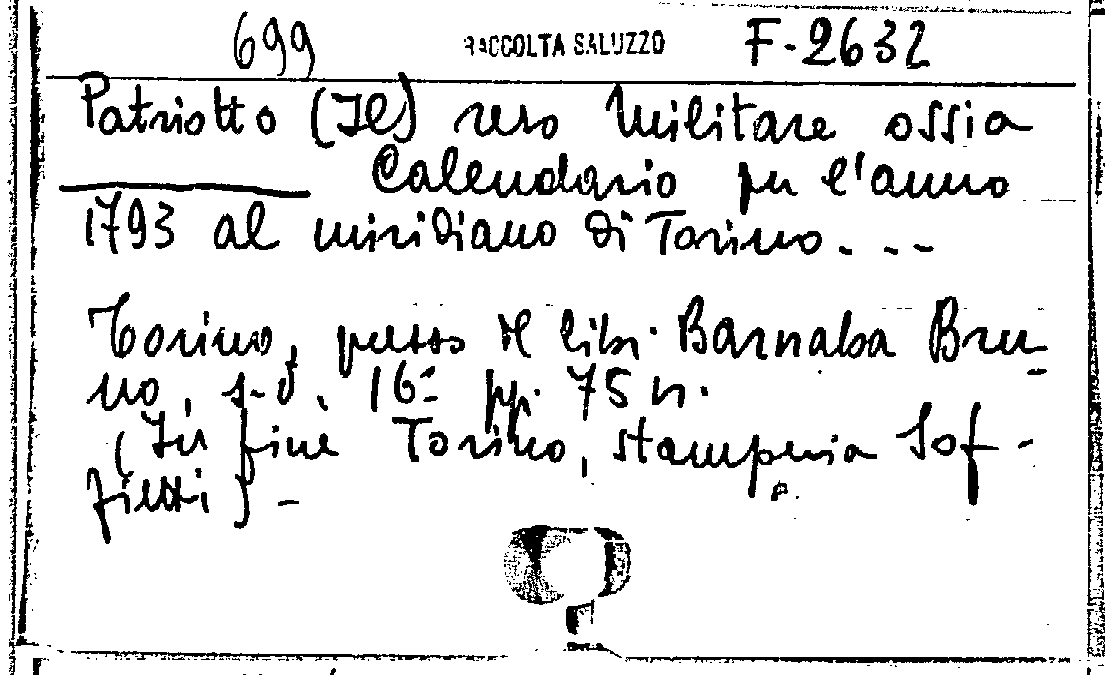 699 RACCOLTA SALUZZO F-2632
Patriotto (Il) reso Militare ossia
Calendario per l'anno
1793 al miridiano di Torino...
Torino, presso il libr. Barnaba Bru-
no, s.d. 16° pp. 75 n.
(In fine Torino, stamperia Sof-
fietti) -